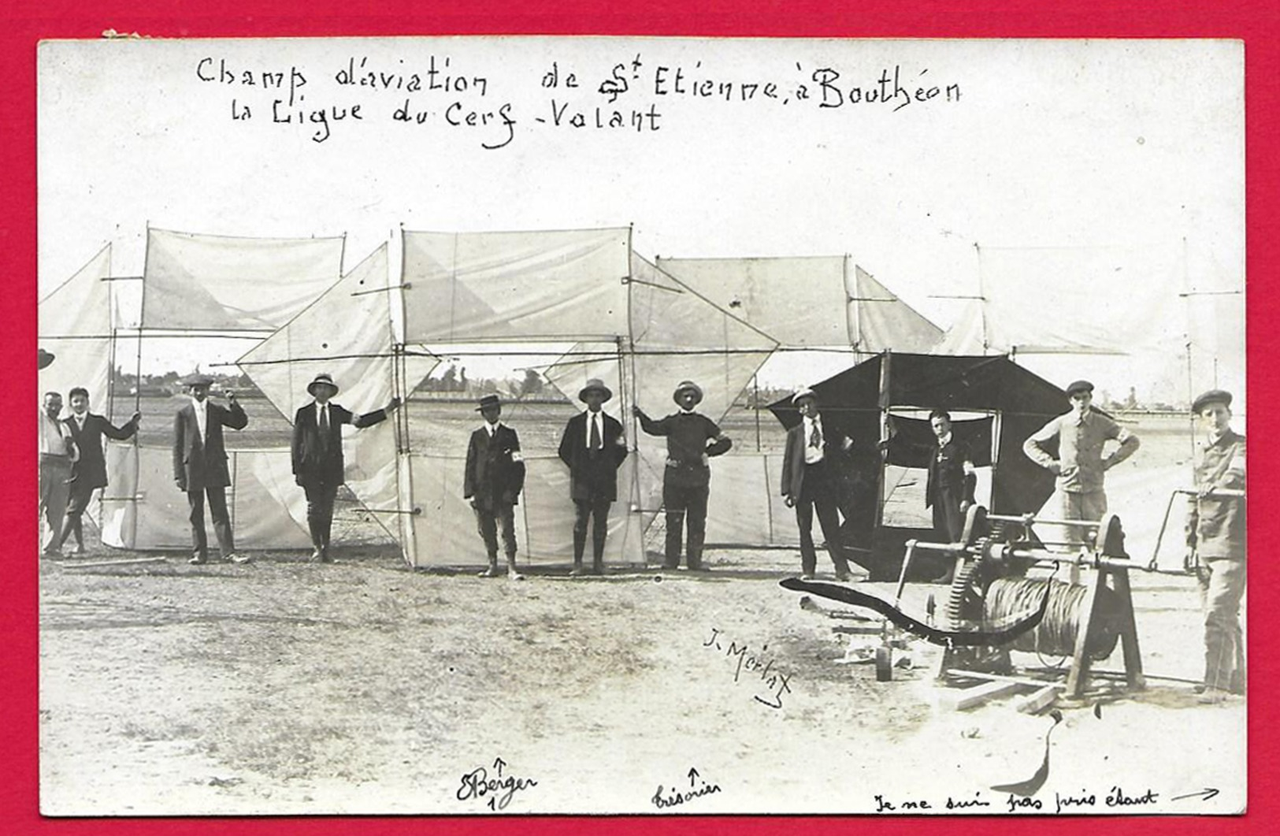 Champ d'aviation de St Etienne, à Bouthéon
la Ligue du Cerf-Volant
J. Merlat
Berger
trésorier
Je ne suis pas pris étant →